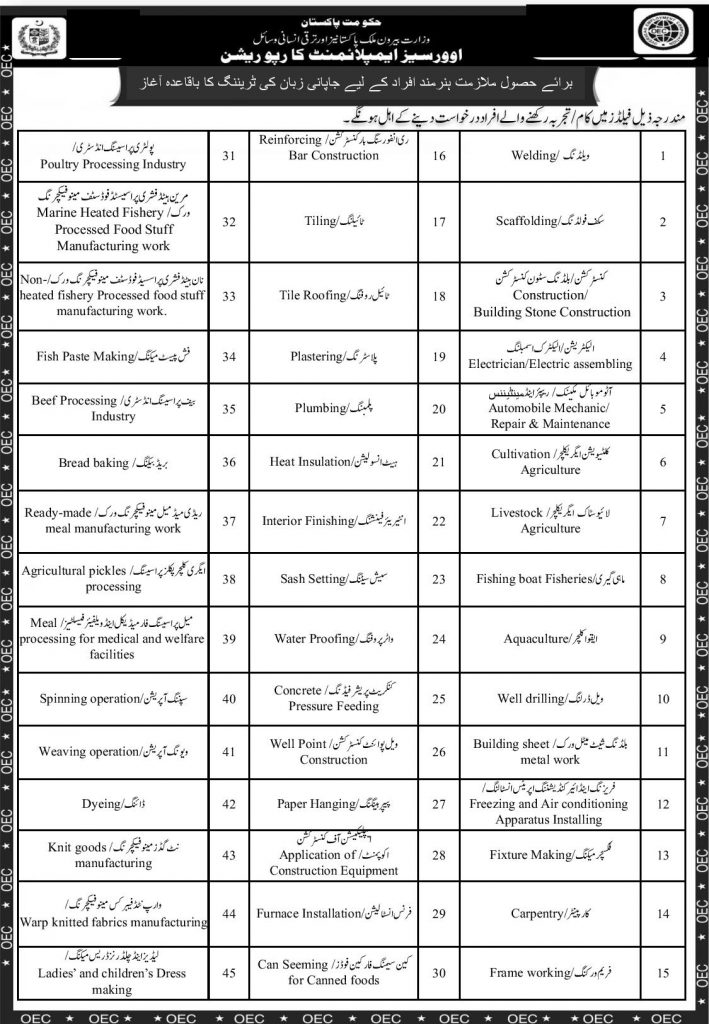 حکومت پاکستان
وزارت بیرون ملک پاکستانیز اور ترقی انسانی وسائل
اوورسیز ایمپلائمنٹ کارپوریشن
برائے حصول ملازمت ہنرمند افراد کے لیے جاپانی زبان کی ٹریننگ کا باقاعدہ آغاز
مندرجہ ذیل فیلڈز میں کام/تجربہ رکھنے والے افراد درخواست دینے کے اہل ہونگے۔
1
ویلڈنگ/Welding
2
سکف فولڈنگ/Scaffolding
3
کنسٹرکشن/بلڈنگ سٹون کنسٹرکشن
Construction/
Building Stone Construction
4
الیکٹریشن/الیکٹرک اسمبلنگ
Electrician/Electric assembling
5
آٹوموبائل مکینک/ ریپئر اینڈ مینٹیننس
Automobile Mechanic/
Repair & Maintenance
6
کلٹیویشن ایگریکلچر/ Cultivation
Agriculture
7
لائیوسٹاک ایگریکلچر/ Livestock
Agriculture
8
ماہی گیری/Fishing boat Fisheries
9
ایقوا کلچر/Aquaculture
10
ویل ڈرلنگ/Well drilling
11
بلڈنگ شیٹ میٹل ورک/ Building sheet
metal work
12
فریزنگ اینڈ ائیر کنڈیشننگ اپریٹس انسٹالنگ/
Freezing and Air conditioning
Apparatus Installing
13
فکسچر میکنگ/Fixture Making
14
کارپینٹر/Carpentry
15
فریم ورکنگ/Frame working
16
ری انفورسنگ بار کنسٹرکشن/ Reinforcing
Bar Construction
17
ٹائیلنگ/Tiling
18
ٹائیل روفنگ/Tile Roofing
19
پلاسٹرنگ/Plastering
20
پلمبنگ/Plumbing
21
ہیٹ انسولیشن/Heat Insulation
22
انٹیریئر فینشنگ/Interior Finishing
23
سیش سیٹنگ/Sash Setting
24
واٹر پروفنگ/Water Proofing
25
کنکریٹ پریشر فیڈنگ/ Concrete
Pressure Feeding
26
ویل پوائنٹ کنسٹرکشن/ Well Point
Construction
27
پیپر ہینگنگ/Paper Hanging
28
اپلیکیشن آف کنسٹرکشن
اکوپمنٹ/ Application of
Construction Equipment
29
فرنس انسٹالیشن/Furnace Installation
30
کین سیمنگ فار کین فوڈز/ Can Seeming
for Canned foods
31
پولٹری پراسیسنگ انڈسٹری/
Poultry Processing Industry
32
میرین ہیٹڈ فشری پراسیسڈ فوڈ سٹف مینوفیکچرنگ
ورک/ Marine Heated Fishery
Processed Food Stuff
Manufacturing work
33
نان ہیٹڈ فشری پراسیسڈ فوڈ سٹف مینوفیکچرنگ ورک/Non-
heated fishery Processed food stuff
manufacturing work.
34
فش پیسٹ میکنگ/Fish Paste Making
35
بیف پراسیسنگ انڈسٹری/ Beef Processing
Industry
36
بریڈ بیکنگ/ Bread baking
37
ریڈی میڈ میل مینوفیکچرنگ ورک/ Ready-made
meal manufacturing work
38
ایگری کلچر پکلز پراسیسنگ/ Agricultural pickles
processing
39
میل پراسیسنگ فار میڈیکل اینڈ ویلفیئر فیسلٹیز/ Meal
processing for medical and welfare
facilities
40
سپننگ آپریشن/Spinning operation
41
ویونگ آپریشن/Weaving operation
42
ڈائنگ/Dyeing
43
نٹ گڈز مینوفیکچرنگ/ Knit goods
manufacturing
44
وارپ نٹڈ فیبرکس مینوفیکچرنگ/
Warp knitted fabrics manufacturing
45
لیڈیز اینڈ چلڈرنز ڈریس میکنگ/
Ladies' and children's Dress
making
OEC OEC OEC OEC OEC OEC OEC OEC OEC